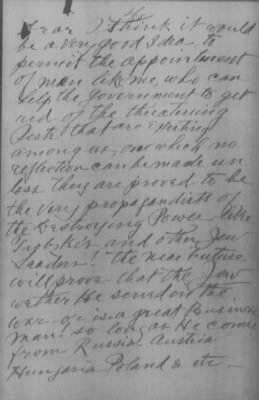 Dear I think it would
be a very good Idea to
permit the appointment
of man like me, who can
help the Government to get
rid of the threatening
Pests that are Existing
among us, on which no
reflection can be made un
less they are proved to be
the very propagandists of
the Destroying Power like
and other Jew
Leaders! the near future
will prove that the Jew
wether He served in the
war or is a great Business
man! so long as He comes
from Russia Austria
Hungaria Poland & etc —